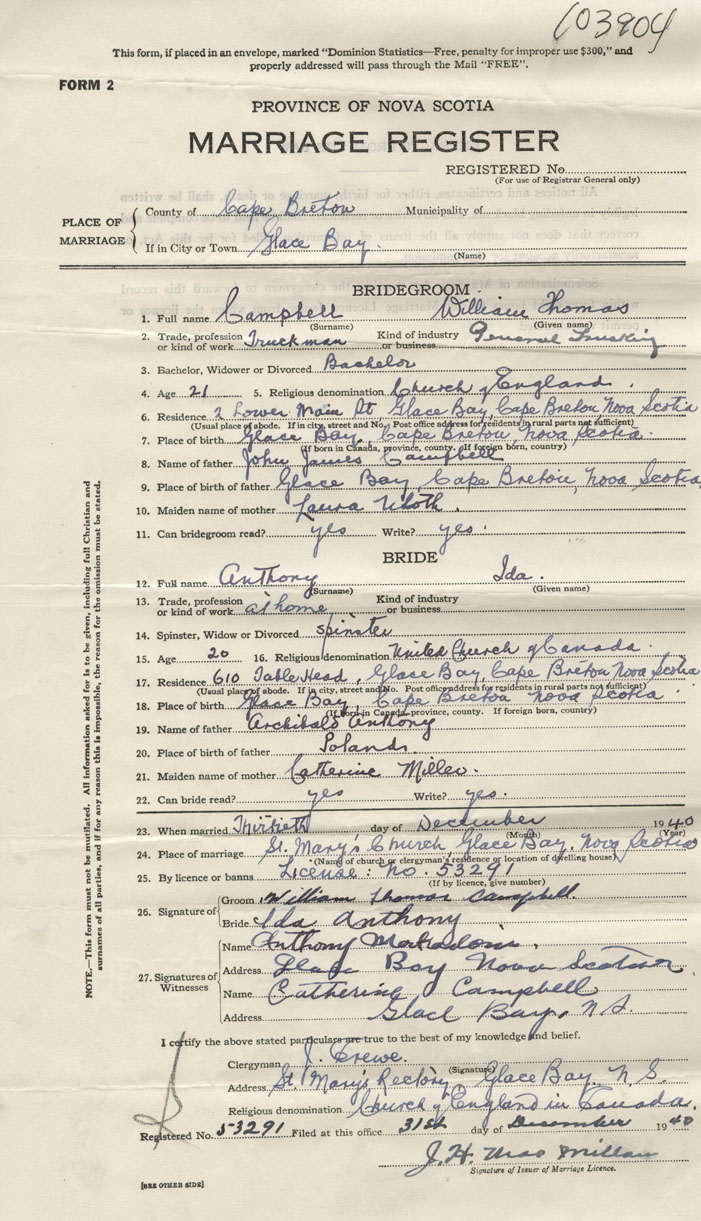 103904
This form, if placed in an envelope, marked "Dominion Statistics—Free, penalty for improper use $300," and
properly addressed will pass through the Mail "FREE".
FORM 2
PROVINCE OF NOVA SCOTIA
MARRIAGE REGISTER
REGISTERED No.
(For use of Registrar General only)
PLACE OF MARRIAGE
County of Cape Breton Municipality of
If in City or Town Glace Bay.
(Name)
BRIDEGROOM
1. Full name Campbell William Thomas
(Surname) (Given name)
2. Trade, profession or kind of work Truckman Kind of industry or business General Trucking
3. Bachelor, Widower or Divorced Bachelor
4. Age 21 5. Religious denomination Church of England.
6. Residence 2 Lower Main St, Glace Bay, Cape Breton Nova Scotia
(Usual place of abode. If in city, street and No. Post office address for residents in rural parts not sufficient)
7. Place of birth Glace Bay, Cape Breton, Nova Scotia.
(If born in Canada, province, county. If foreign born, country)
8. Name of father John James Campbell
9. Place of birth of father Glace Bay Cape Breton, Nova Scotia,
10. Maiden name of mother Laura
11. Can bridegroom read? yes Write? yes.
BRIDE
12. Full name Anthony Ida.
(Surname) (Given name)
13. Trade, profession or kind of work at home Kind of industry or business
14. Spinster, Widow or Divorced spinster
15. Age 20 16. Religious denomination United Church of Canada.
17. Residence 610 Table Head, Glace Bay Cape Breton Nova Scotia
(Usual place of abode. If in city, street and No. Post office address for residents in rural parts not sufficient)
18. Place of birth Glace Bay, Cape Breton Nova Scotia.
(If born in Canada, province, county. If foreign born, country)
19. Name of father Archibald Anthony
20. Place of birth of father Poland.
21. Maiden name of mother Catherine
22. Can bride read? yes Write? yes.
23. When married Thirtieth day of December 1940
(Month) (Year)
24. Place of marriage St. Mary's Church, Glace Bay, Nova Scotia
(Name of church or clergyman's residence or location of dwelling house)
25. By licence or banns License: No. 53291
(If by licence, give number)
26. Signature of
Groom William Thomas Campbell.
Bride Ida Anthony
27. Signatures of Witnesses
Name Anthony
Address Glace Bay Nova Scotia
Name Catherine Campbell
Address Glace Bay, N.S.
I certify the above stated particulars are true to the best of my knowledge and belief.
Clergyman J. Crewe.
(Signature)
Address St. Mary's Rectory, Glace Bay. N.S.
Religious denomination Church of England in Canada.
Registered No. 53291 Filed at this office 31st day of December 1940
J. H. Mac Millan
Signature of Issuer of Marriage Licence.
[SEE OTHER SIDE]
NOTE.—This form must not be mutilated. All information asked for is to be given, including full Christian and
surnames of all parties, and if for any reason this is impossible, the reason for the omission must be stated.